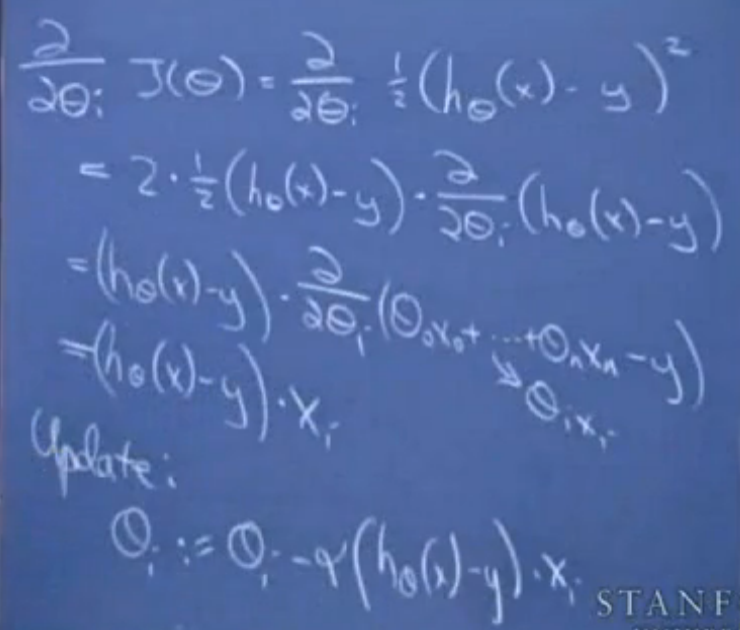 ∂/∂θᵢ J(θ) = ∂/∂θᵢ ½(h_θ(x) - y)²
= 2 · ½(h_θ(x) - y) · ∂/∂θᵢ (h_θ(x) - y)
= (h_θ(x) - y) · ∂/∂θᵢ (θ₀x₀ + ... + θₙxₙ - y)
↘ θᵢxᵢ
= (h_θ(x) - y) · xᵢ
Update:
θᵢ := θᵢ - α(h_θ(x) - y) · xᵢ
STANF